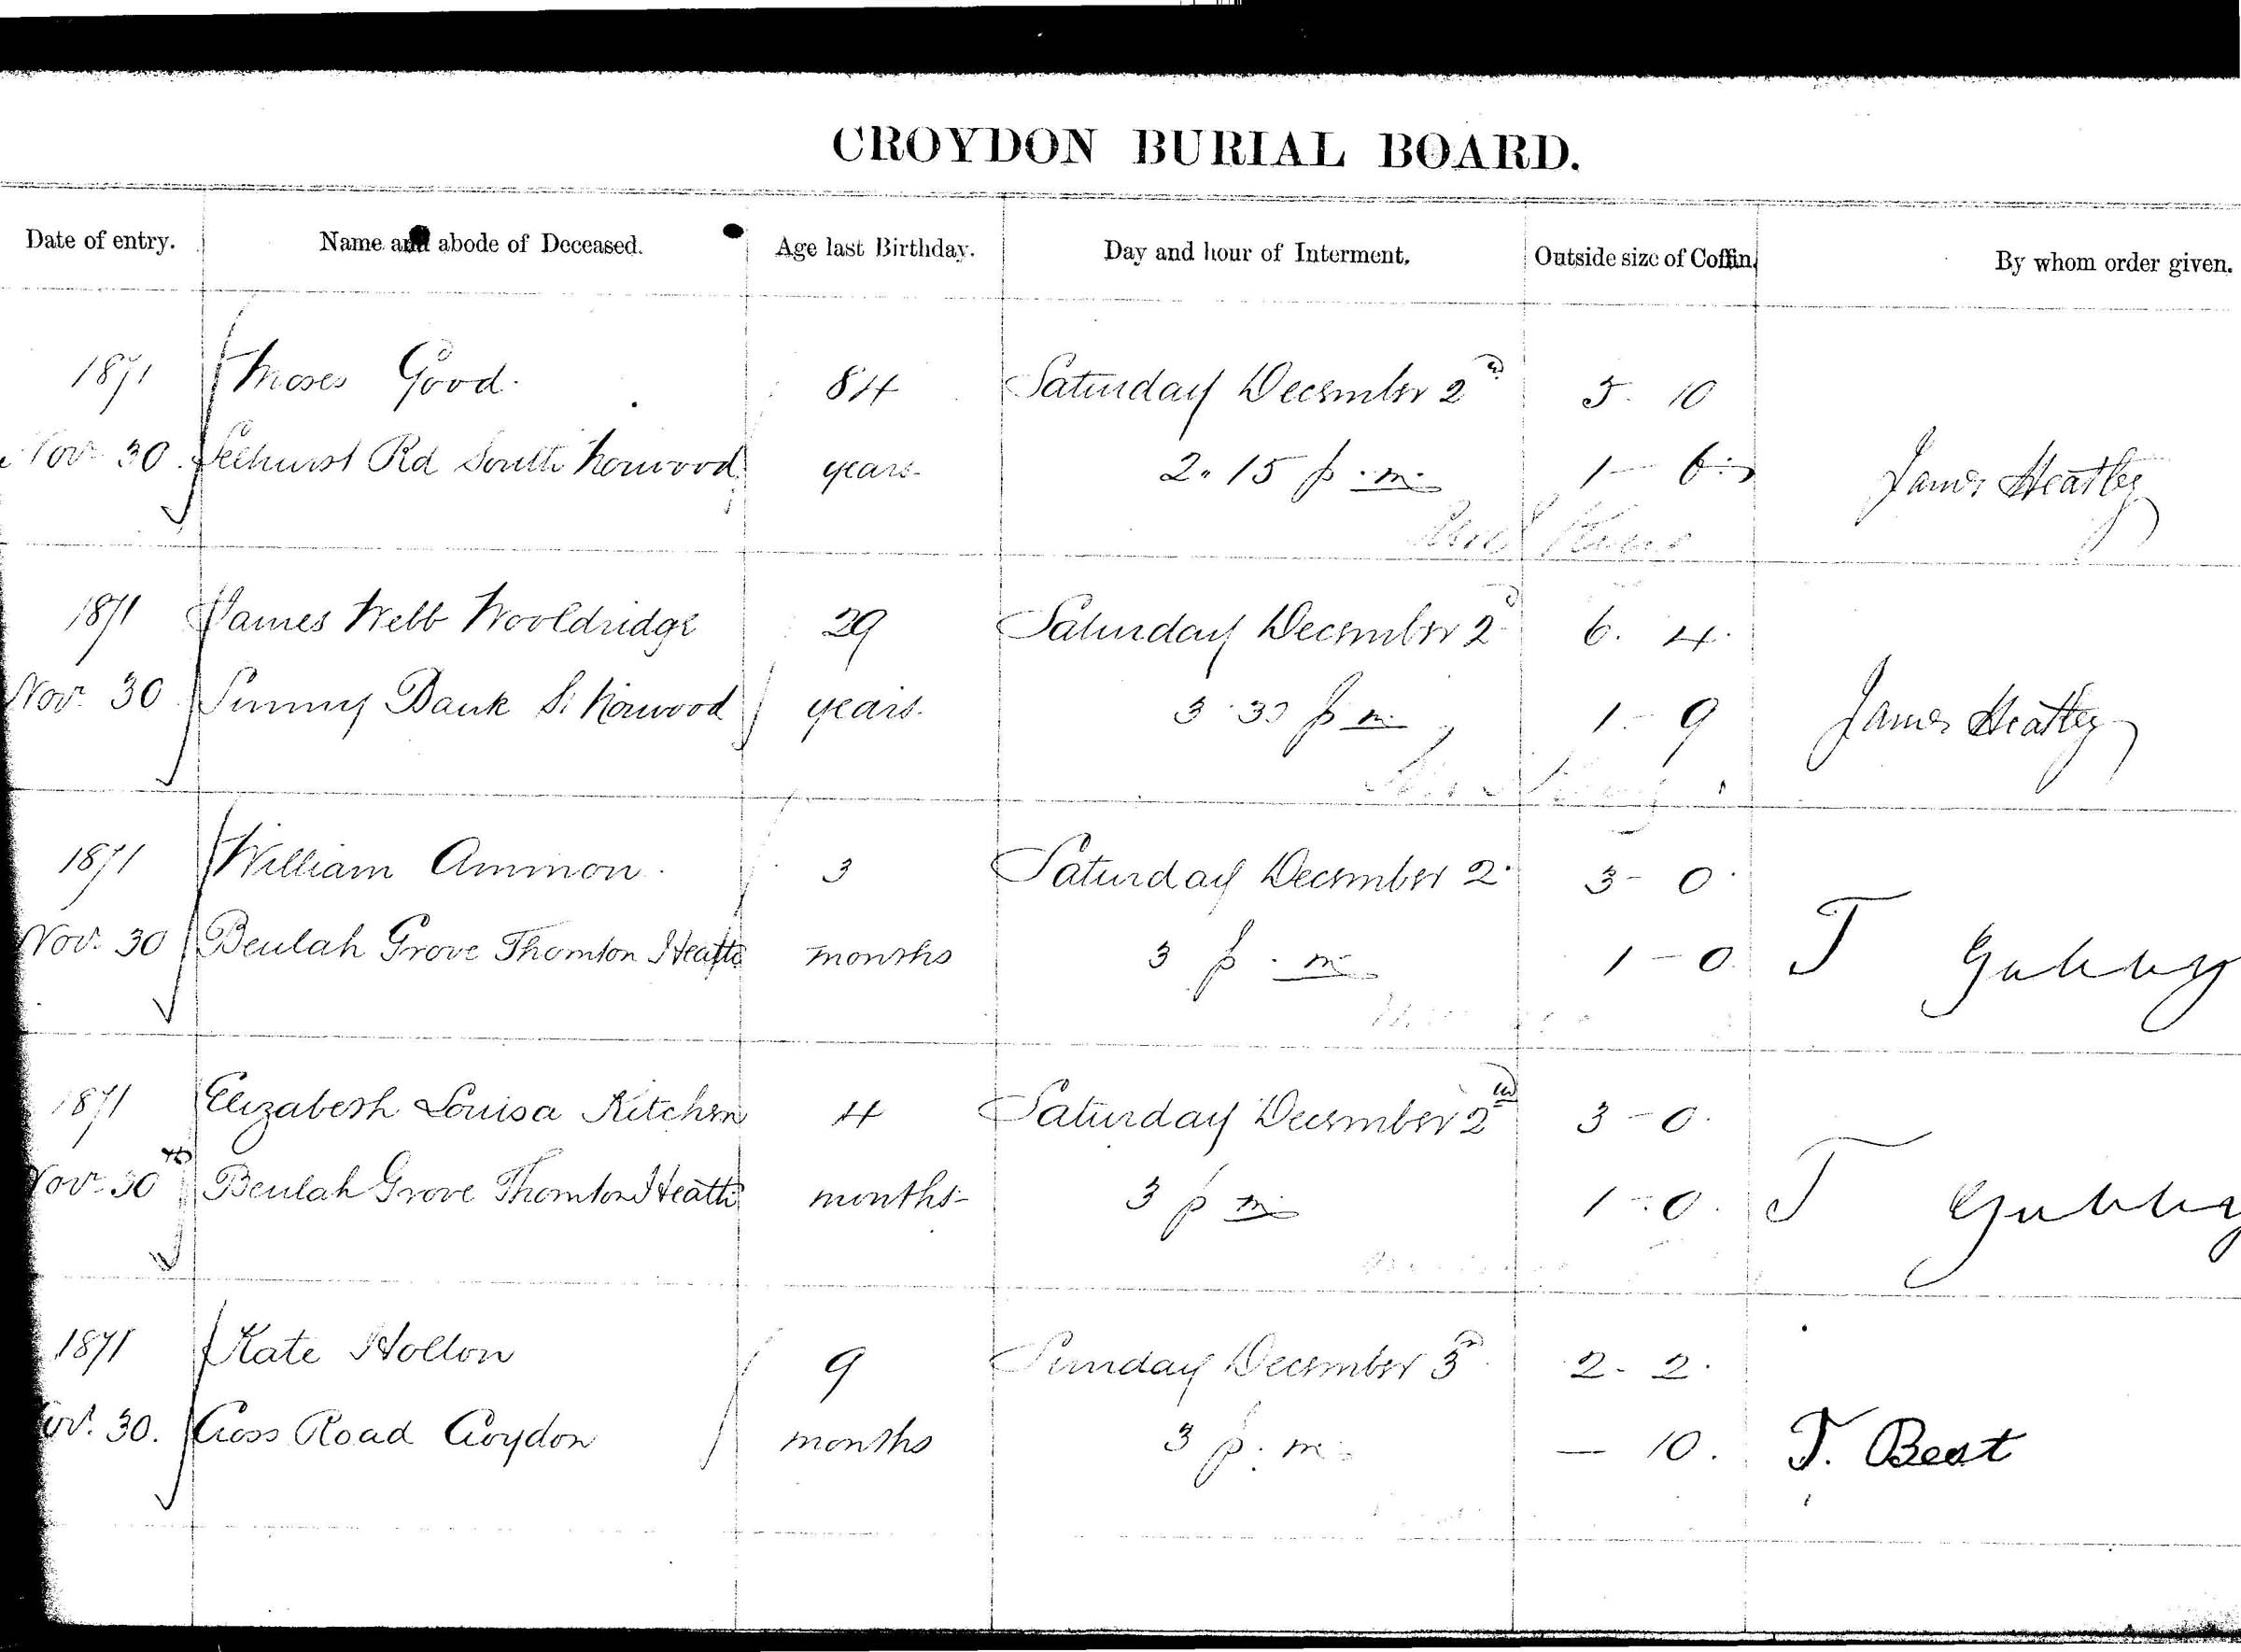 CROYDON BURIAL BOARD.
Date of entry. Name and abode of Deceased. Age last Birthday. Day and hour of Interment. Outside size of Coffin. By whom order given.
1871 Moses Good. 84 Saturday December 2d 5. 10
Nov. 30. Selhurst Rd South Norwood years. 2.15 p.m. 1 - 6 James Heatley
1871 James Webb Wooldridge 29 Saturday December 2d 6. 4.
Nov. 30 Sunny Bank S. Norwood years. 3.30 p m. 1 - 9 James Heatley
1871 William Ammon. 3 Saturday December 2. 3 - 0.
Nov. 30 Beulah Grove Thornton Heath months 3 p.m. 1 - 0. T Gubby
1871 Elizabeth Louisa Kitchen 4 Saturday December 2nd 3 - 0.
Nov. 30th Beulah Grove Thornton Heath months 3 p m 1 - 0. T Gubby
1871 Kate Holton 9 Sunday December 3 2 - 2.
Nov. 30. Cross Road Croydon months 3 p.m. — 10. T. Beat